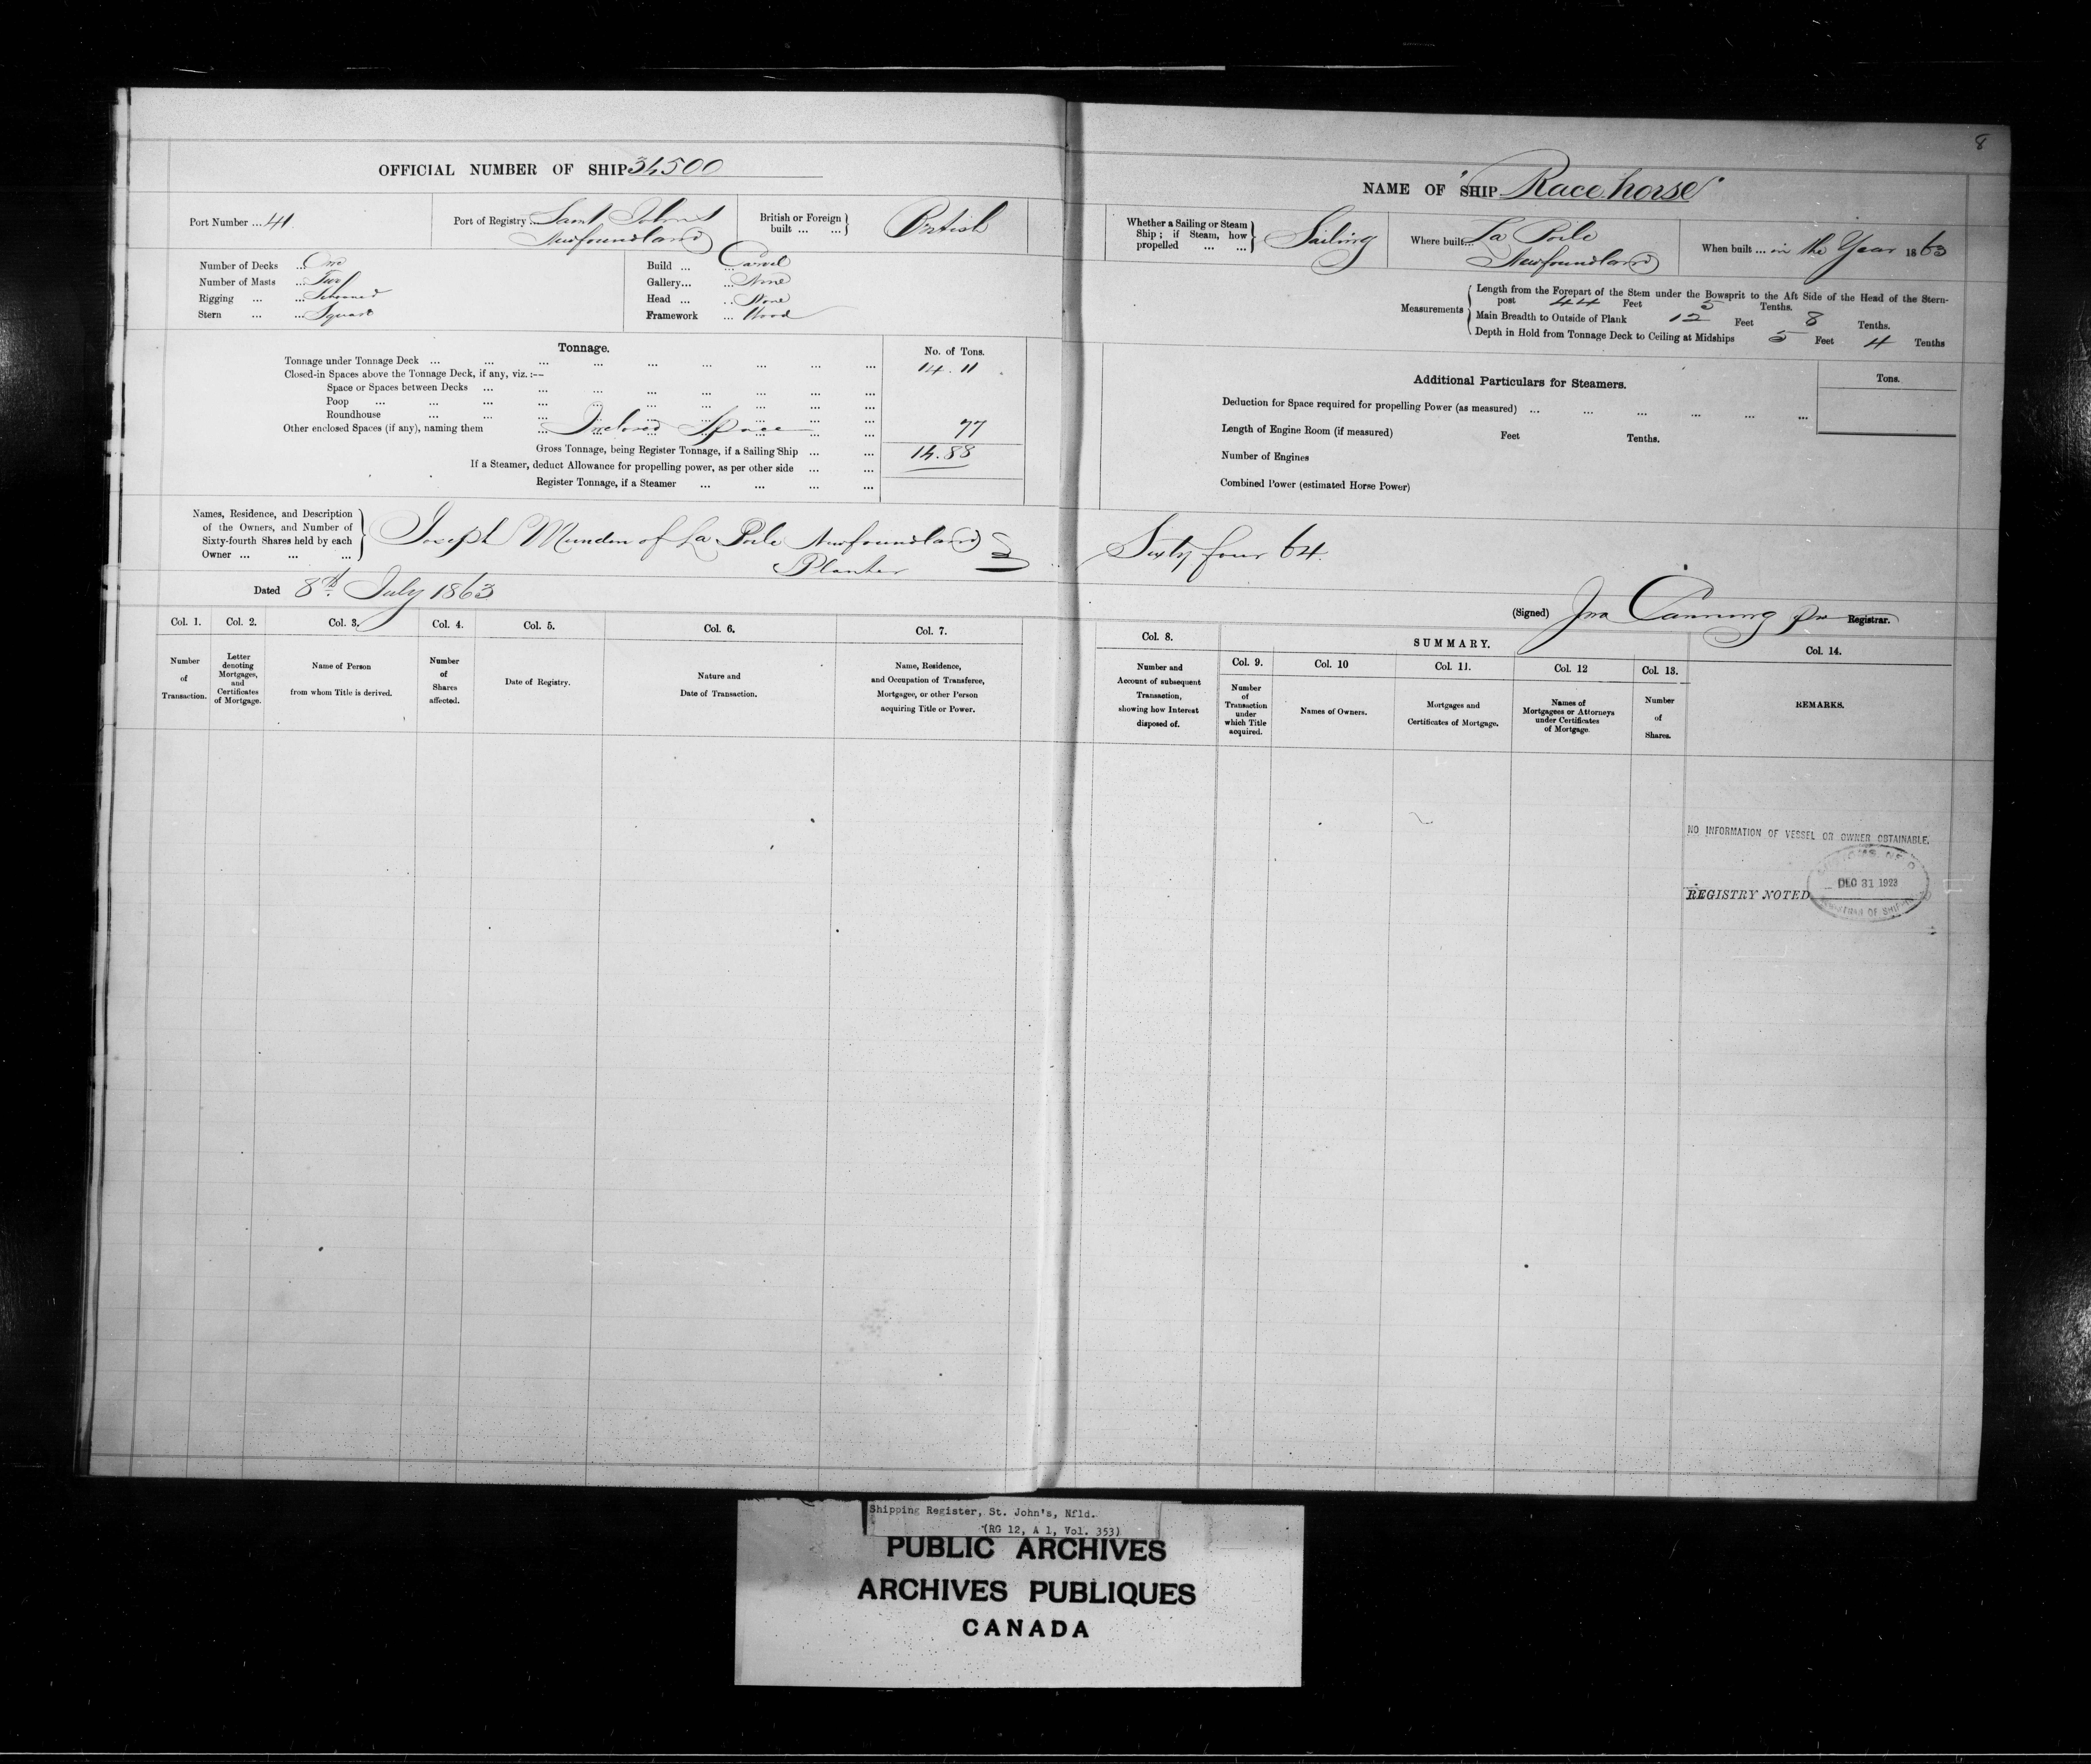 8
OFFICIAL NUMBER OF SHIP 34500
Port Number ... 41
Port of Registry ... Saint John's
Newfoundland
British or Foreign built ... ... British
Number of Decks ... One
Number of Masts ... Two
Rigging ... ... Schooner
Stern ... ... Square
Build ... ... Carvel
Gallery ... ... None
Head ... ... None
Framework ... Wood
Tonnage.
No. of Tons.
Tonnage under Tonnage Deck ... ... ... ... ... ... ... ... ... 14.11
Closed-in Spaces above the Tonnage Deck, if any, viz.:—
Space or Spaces between Decks ... ... ... ... ... ... ...
Poop ... ... ... ... ... ... ... ...
Roundhouse ... ... ... ... ... ... ... ...
Other enclosed Spaces (if any), naming them ... Inclosed Space 77
Gross Tonnage, being Register Tonnage, if a Sailing Ship ... ... 14.88
If a Steamer, deduct Allowance for propelling power, as per other side ... ...
Register Tonnage, if a Steamer ... ... ... ...
Names, Residence, and Description
of the Owners, and Number of
Sixty-fourth Shares held by each
Owner ... ... ...
Joseph Munden of La Poile Newfoundland
Planter
Dated 8th July 1863
Col. 1. Col. 2. Col. 3. Col. 4. Col. 5. Col. 6. Col. 7.
Number of Transaction.
Letter denoting Mortgages, and Certificates of Mortgage.
Name of Person from whom Title is derived.
Number of Shares affected.
Date of Registry.
Nature and Date of Transaction.
Name, Residence, and Occupation of Transferee, Mortgagee, or other Person acquiring Title or Power.
NAME OF SHIP "Race horse"
Whether a Sailing or Steam
Ship; if Steam, how
propelled ... ...
Sailing
Where built ... La Poile
Newfoundland
When built ... in the Year 1863
Measurements
Length from the Forepart of the Stem under the Bowsprit to the Aft Side of the Head of the Stern-
post 44 Feet 5 Tenths.
Main Breadth to Outside of Plank 12 Feet 8 Tenths.
Depth in Hold from Tonnage Deck to Ceiling at Midships 5 Feet 4 Tenths
Additional Particulars for Steamers.
Tons.
Deduction for Space required for propelling Power (as measured) ... ... ... ... ... ...
Length of Engine Room (if measured) Feet Tenths.
Number of Engines
Combined Power (estimated Horse Power)
Sixty four 64
(Signed) Jno Canning Registrar.
Col. 8.
SUMMARY.
Col. 9. Col. 10 Col. 11. Col. 12 Col. 13. Col. 14.
Number and Account of subsequent Transaction, showing how Interest disposed of.
Number of Transaction under which Title acquired.
Names of Owners.
Mortgages and Certificates of Mortgage.
Names of Mortgagees or Attorneys under Certificates of Mortgage.
Number of Shares.
REMARKS.
NO INFORMATION OF VESSEL OR OWNER OBTAINABLE.
REGISTRY NOTED
DEC 31 1923
REGISTRAR OF SHIPPING
Shipping Register, St. John's, Nfld.
(RG 12, A 1, Vol. 353)
PUBLIC ARCHIVES
ARCHIVES PUBLIQUES
CANADA